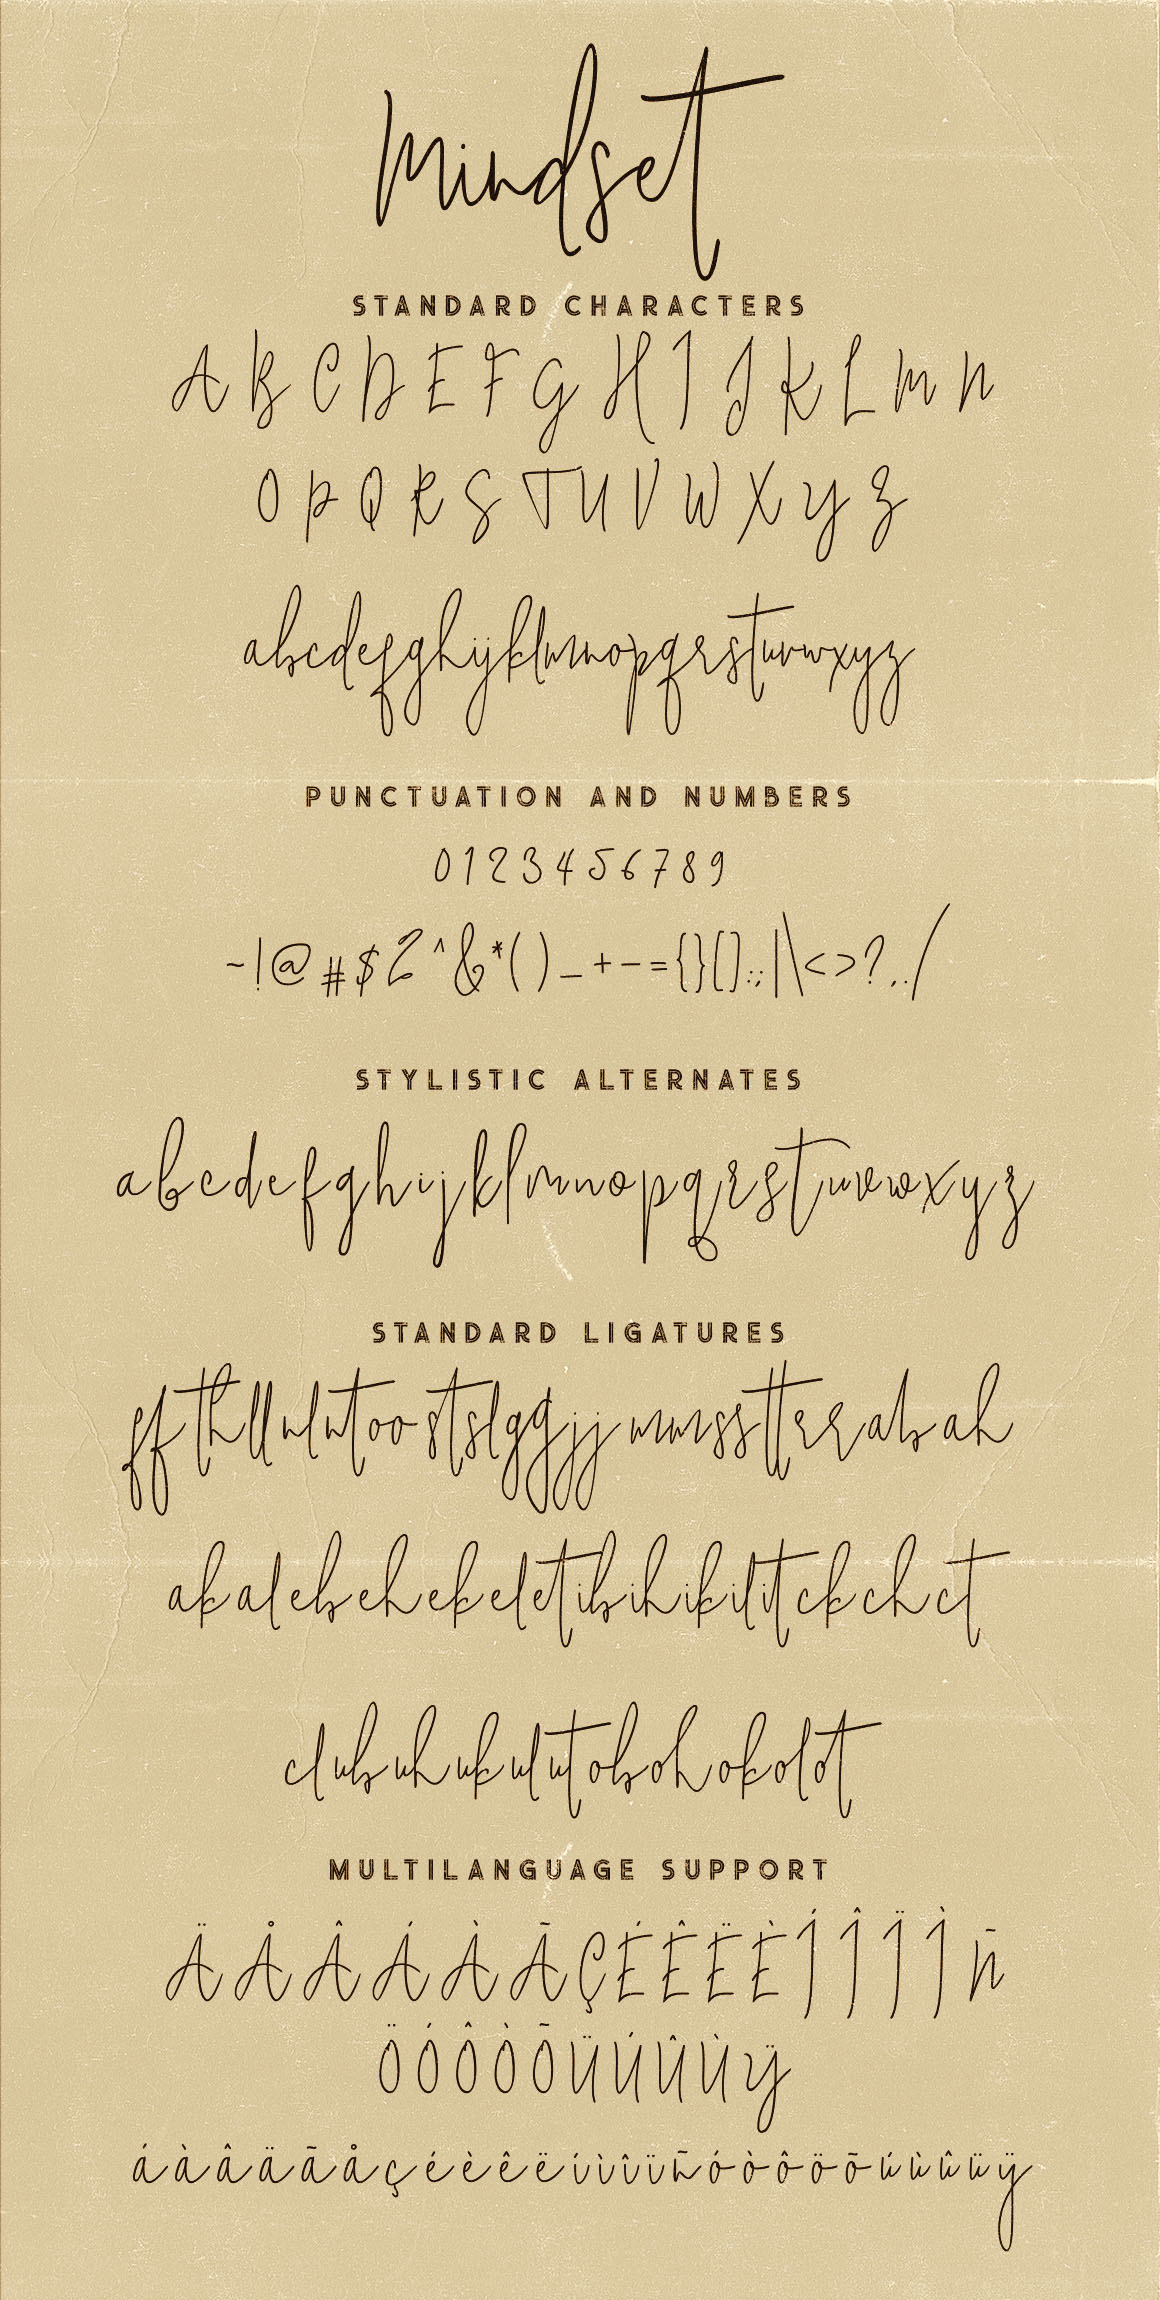 Mindset
STANDARD CHARACTERS
A B C D E F G H I J K L M N
O P Q R S T U V W X Y Z
abcdefghijklmnopqrstuvwxyz
PUNCTUATION AND NUMBERS
0 1 2 3 4 5 6 7 8 9
~!@#$2^&*()_+-={}[]:;|\<>?,./
STYLISTIC ALTERNATES
abcdefghijklmnopqrstuvwxyz
STANDARD LIGATURES
akalebehekeletibihikilitckchct
clubuhukulutobohokolot
MULTILANGUAGE SUPPORT
Ä Å Â Á À Ã Ç É Ê Ë È Í Î Ï Ì Ñ
Ö Ó Ô Ò Õ Ü Ú Û Ù Ÿ
áàâäãåçéèêëíìîïñóòôöõúùûüÿ